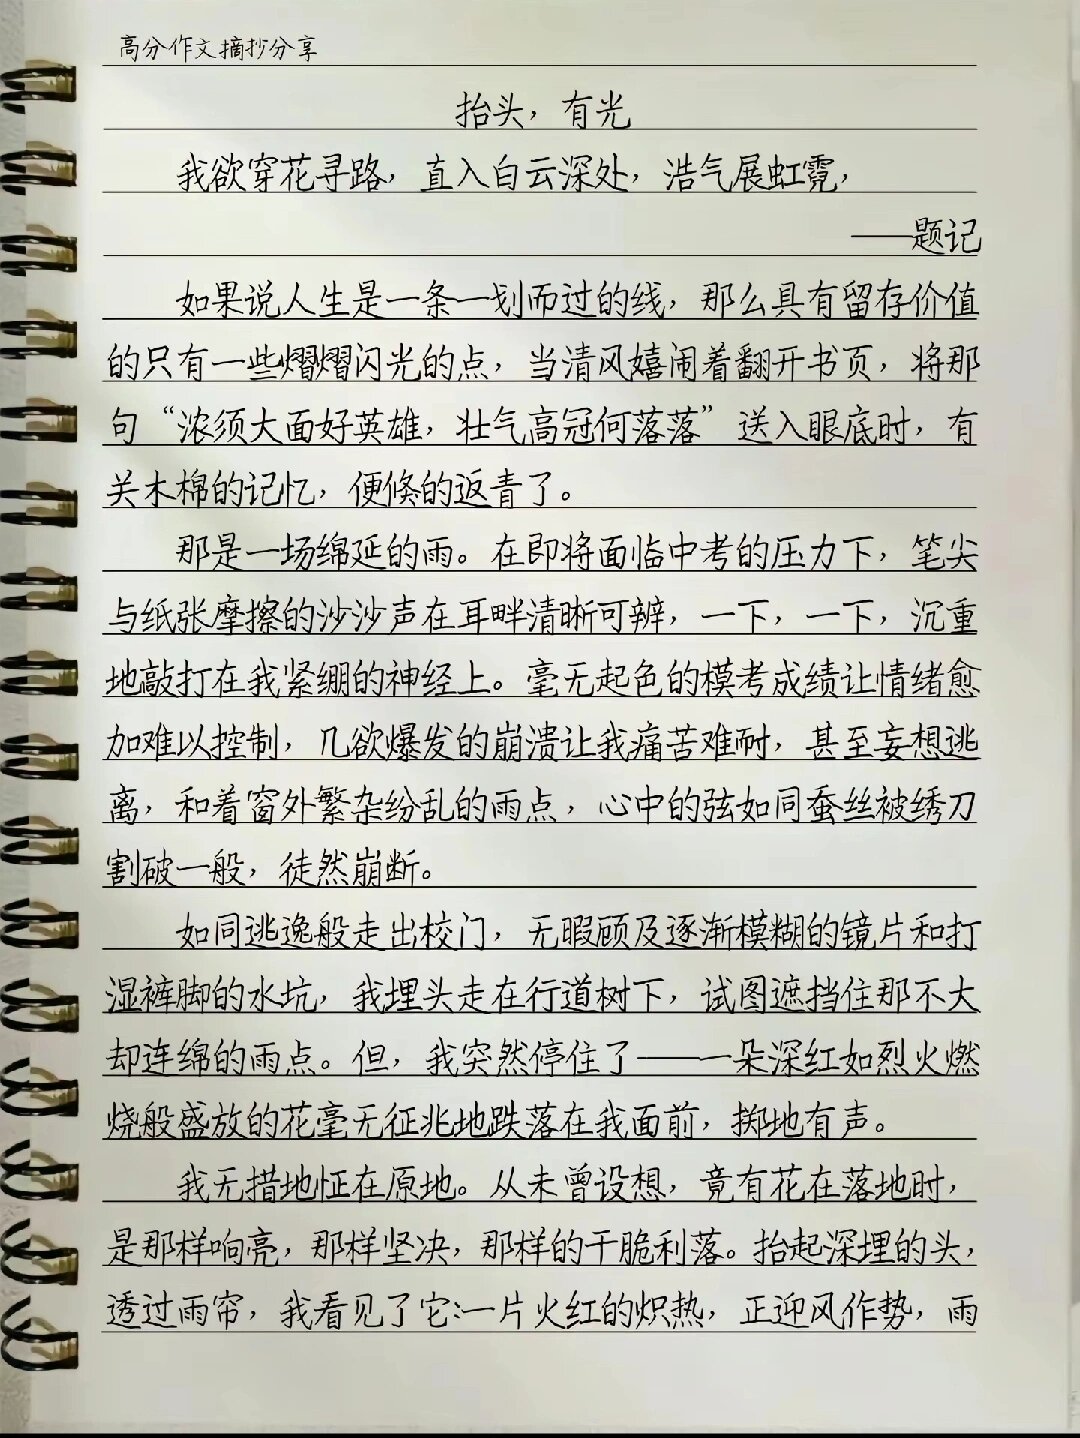 高分作文摘抄分享
抬头，有光
我欲穿花寻路，直入白云深处，浩气展虹霓，
——题记
如果说人生是一条一划而过的线，那么具有留存价值
的只有一些熠熠闪光的点，当清风嬉闹着翻开书页，将那
句“浓须大面好英雄，壮气高冠何落落”送入眼底时，有
关木棉的记忆，便倏的返青了。
那是一场绵延的雨。在即将面临中考的压力下，笔尖
与纸张摩擦的沙沙声在耳畔清晰可辨，一下，一下，沉重
地敲打在我紧绷的神经上。毫无起色的模考成绩让情绪愈
加难以控制，几欲爆发的崩溃让我痛苦难耐，甚至妄想逃
离，和着窗外繁杂纷乱的雨点，心中的弦如同蚕丝被绣刀
割破一般，徒然崩断。
如同逃逸般走出校门，无暇顾及逐渐模糊的镜片和打
湿裤脚的水坑，我埋头走在行道树下，试图遮挡住那不大
却连绵的雨点。但，我突然停住了——一朵深红如烈火燃
烧般盛放的花毫无征兆地跌落在我面前，掷地有声。
我无措地怔在原地。从未曾设想，竟有花在落地时，
是那样响亮，那样坚决，那样的干脆利落。抬起深埋的头，
透过雨帘，我看见了它:一片火红的炽热，正迎风作势，雨